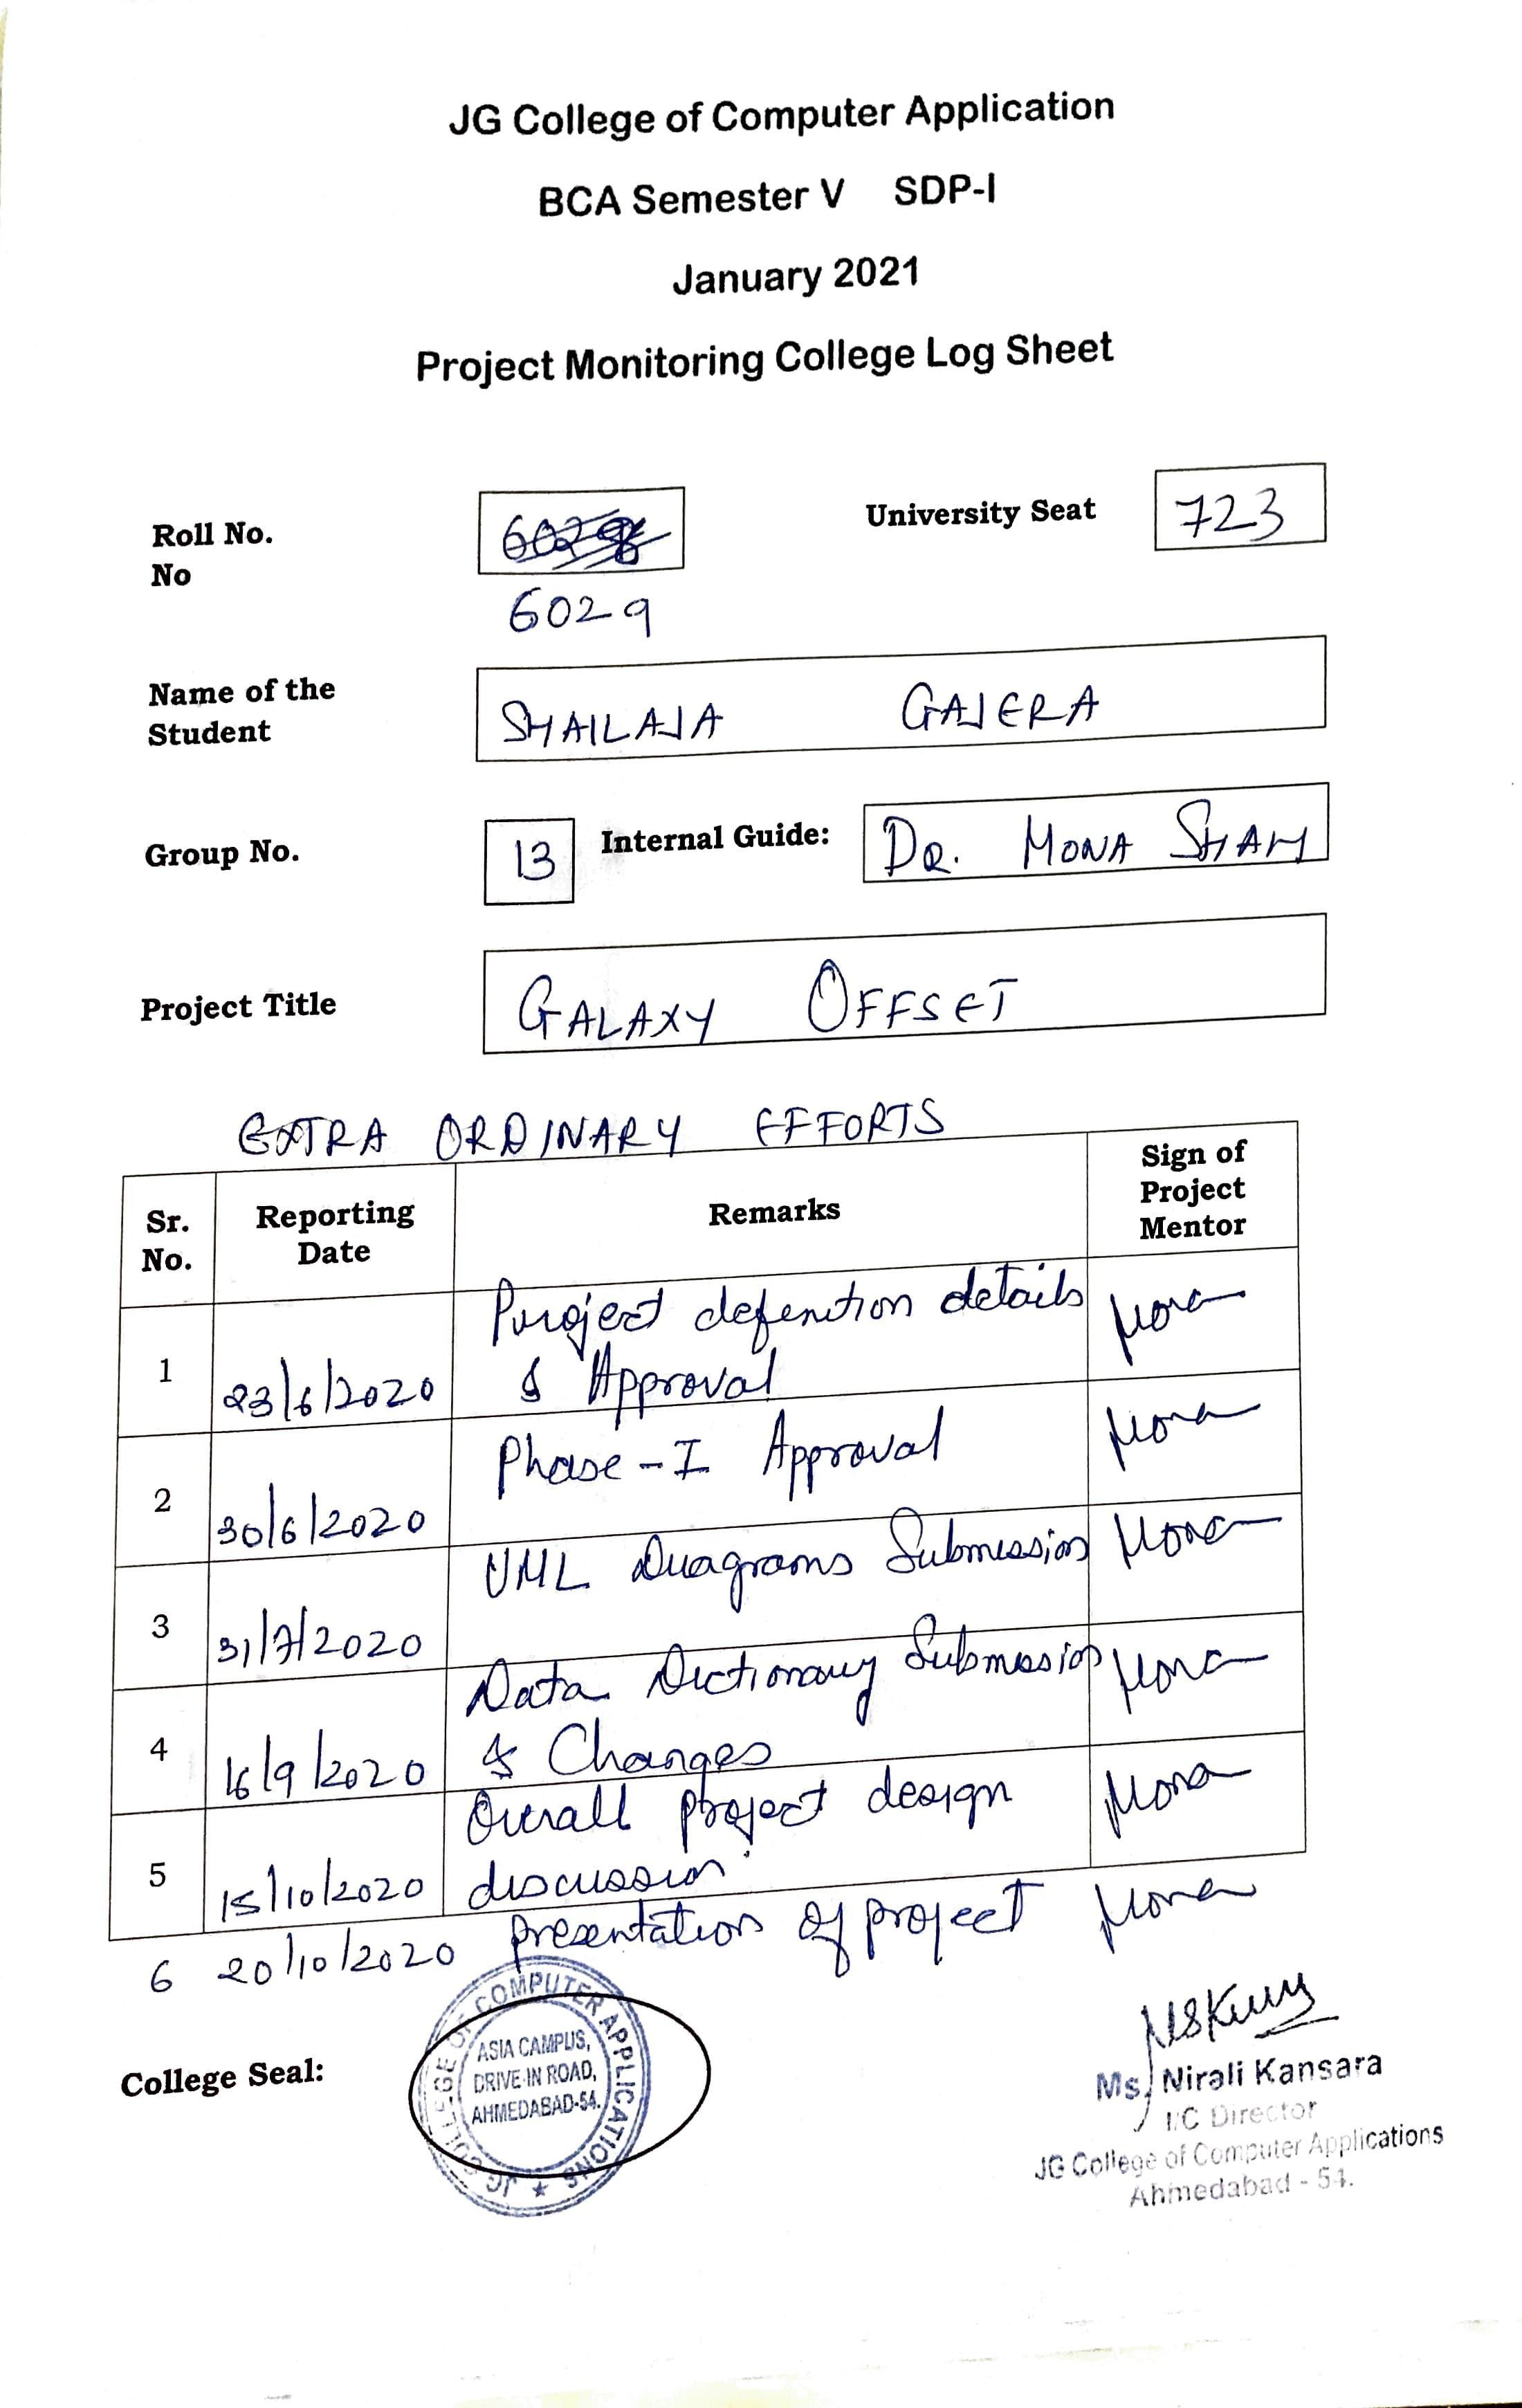 JG College of Computer Application
BCA Semester V SDP-I
January 2021
Project Monitoring College Log Sheet
Roll No. University Seat 723
No
6029
Name of the
Student SHAILAJA GAJERA
Group No. 13 Internal Guide: DR. MONA SHAH
Project Title GALAXY OFFSET
EXTRA ORDINARY EFFORTS
Sr. No. Reporting Date Remarks Sign of Project Mentor
1 23/6/2020 Project defenition details
& Approval Mona
2 30/6/2020 Phase-I Approval Mona
3 31/7/2020 UML Diagrams Submission Mona
4 16/9/2020 Data Dictionary Submission
& Changes Mona
5 15/10/2020 Overall project design
discussion. Mona
6 20/10/2020 presentation of project Mona
College Seal:
JG COLLEGE OF COMPUTER APPLICATIONS ★
ASIA CAMPUS,
DRIVE-IN ROAD,
AHMEDABAD-54.
Ms. Nirali Kansara
I/C Director
JG College of Computer Applications
Ahmedabad - 54.